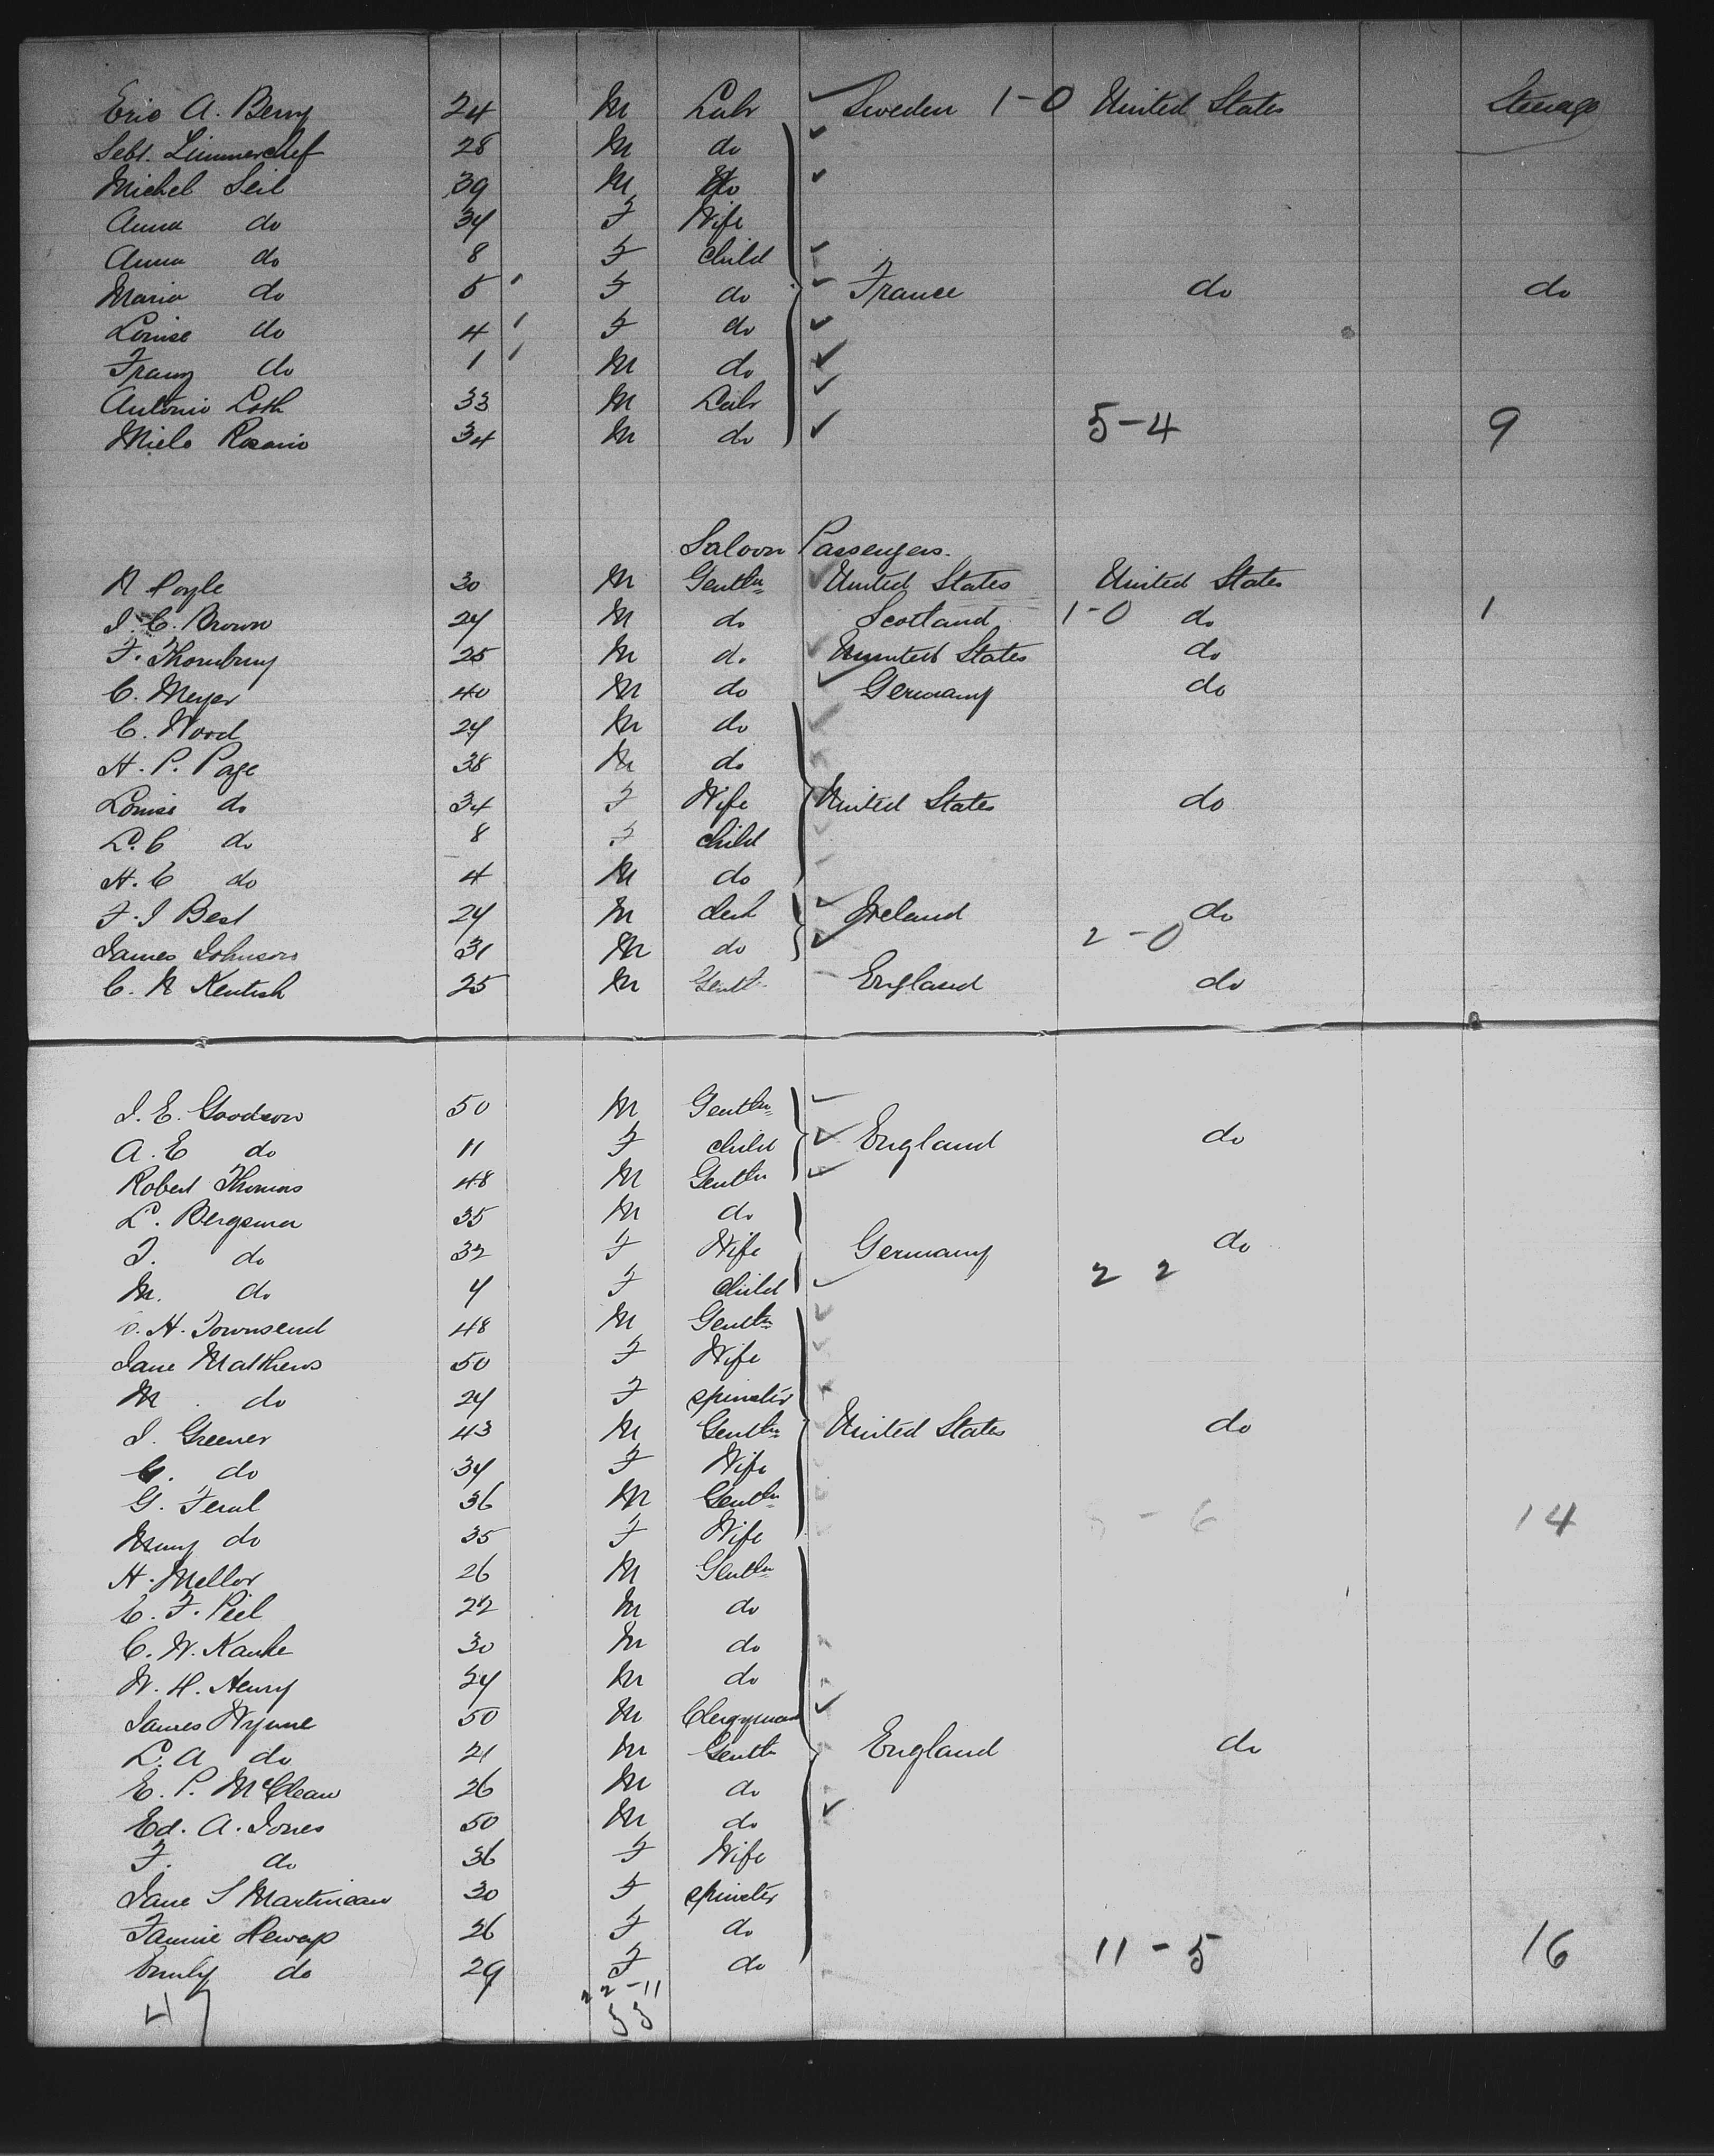 Eric A. Berry 24 M Labr Sweden 1-0 United States Steerage
Sebt. Limmerchef 28 M do
Michel Seil 39 M do
Anna do 34 F Wife
Anna do 8 F child
Maria do 5 F do France do do
Louise do 4 F do
Franz do 1 M do
Antonio Loth 33 M Labr
Miele Rosario 34 M do 5-4 9
Saloon Passengers.
30 M Gentln United States United States
J. C. Brown 24 M do Scotland 1-0 do 1
F. Thornbury 25 M do United States do
C. Meyer 40 M do Germany do
C. Wood 24 M do
H. P. Page 38 M do
Louise do 34 F Wife United States do
L. C do 8 F child
H. C do 4 M do
F. J Best 24 M clerk Ireland do
James Johnson 31 M do 2-0
C. N Kentish 25 M Gentl England do
J. E. Goodson 50 M Gentln
A. E do 11 F child England do
Robert Thomas 48 M Gentln
L. Bergsma 35 M do
J. do 32 F Wife Germany do
M. do 4 F child 2 2
H. Townsend 48 M Gentln
Jane Matthews 50 F Wife
M. do 24 F spinster
J. Greener 43 M Gentln United States do
G. do 34 F Wife
G. Ferul 36 M Gentln - 6 14
do 35 F Wife
H. Mellor 26 M Gentln
E. F. Peel 22 M do
C. W. Kanke 30 M do
W. H. Henry 24 M do
James Wynne 50 M Clergyman
L. A do 21 M Gentln England do
E. P. McClean 26 M do
Ed. A. Jones 50 M do
F. do 36 F Wife
Jane S Martineau 30 F spinster
Fannie 26 F do 11-5 16
Emily do 29 F do
47 22-11
33